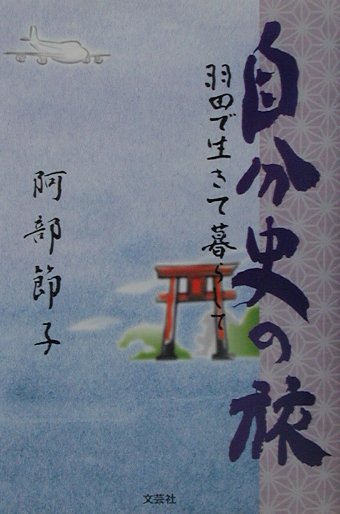 自分史の旅
羽田で生きて暮らして
阿部節子
文芸社